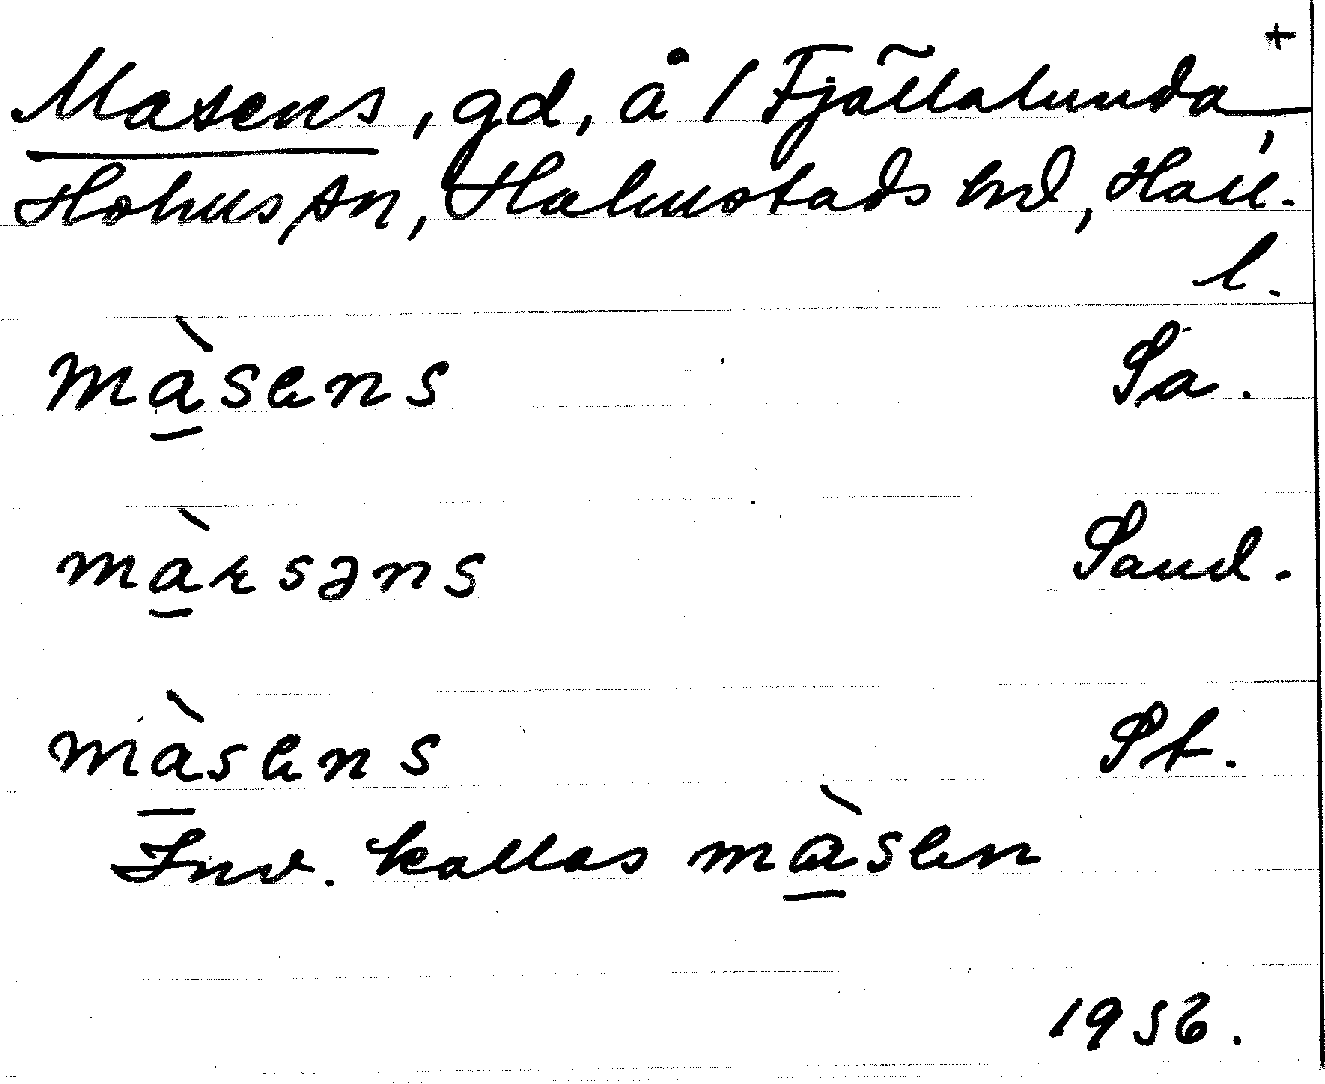 +
Masens, gd, å 1 Fjällalunda,
Holms sn, Halmstads hd, Hall.
l.
màsens Sa.
màrsəns Sand.
màsens St.
Inv. kallas màsen
1956.